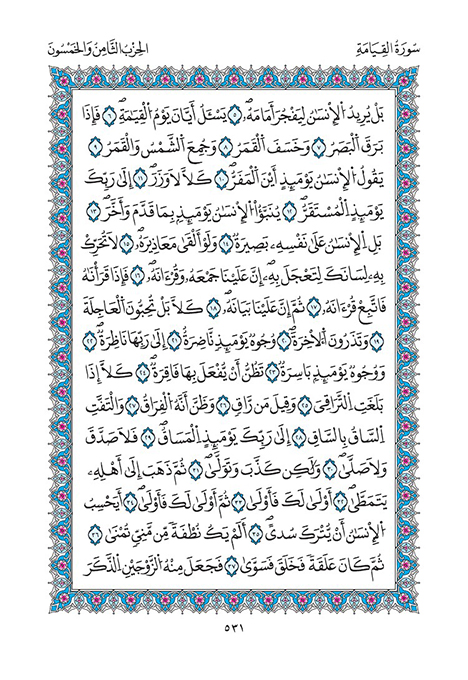 سُورَةُ الْقِيَامَةِ
الحِزْبُ الثَّامِنُ وَالْخَمْسُونَ
بَلْ يُرِيدُ اُلْإِنسَٰنُ لِيَفْجُرَ أَمَامَهُۥ ٥ يَسْـَٔلُ أَيَّانَ يَوْمُ اُلْقِيَٰمَةِ ٦ فَإِذَا
بَرَقَ اَلْبَصَرُ ٧ وَخَسَفَ اَلْقَمَرُ ٨ وَجُمِعَ اَلشَّمْسُ وَالْقَمَرُ ٩
يَقُولُ اُلْإِنسَٰنُ يَوْمَئِذٍ أَيْنَ اَلْمَفَرُّ ١٠ كَلَّا لَا وَزَرَ ١١ إِلَىٰ رَبِّكَ
يَوْمَئِذٍ اِلْمُسْتَقَرُّ ١٢ يُنَبَّؤُاْ اُلْإِنسَٰنُ يَوْمَئِذٍۢ بِمَا قَدَّمَ وَأَخَّرَ ١٣
بَلِ اِلْإِنسَٰنُ عَلَىٰ نَفْسِهِۦ بَصِيرَةٌ ١٤ وَلَوْ أَلْقَىٰ مَعَاذِيرَهُۥ ١٥ لَا تُحَرِّكْ
بِهِۦ لِسَانَكَ لِتَعْجَلَ بِهِۦ إِنَّ عَلَيْنَا جَمْعَهُۥ وَقُرْءَانَهُۥ ١٦ فَإِذَا قَرَأْنَٰهُ
فَاتَّبِعْ قُرْءَانَهُۥ ١٧ ثُمَّ إِنَّ عَلَيْنَا بَيَانَهُۥ ١٨ كَلَّا بَلْ تُحِبُّونَ اَلْعَاجِلَةَ
١٩ وَتَذَرُونَ اَلْأٓخِرَةَ ٢٠ وُجُوهٌ يَوْمَئِذٍ نَّاضِرَةٌ ٢١ إِلَىٰ رَبِّهَا نَاظِرَةٌ ٢٢
وَوُجُوهٌ يَوْمَئِذٍۢ بَاسِرَةٌ ٢٣ تَظُنُّ أَنْ يُّفْعَلَ بِهَا فَاقِرَةٌ ٢٤ كَلَّا إِذَا
بَلَغَتِ اِلتَّرَاقِيَ ٢٥ وَقِيلَ مَن رَّاقٍ ٢٦ وَظَنَّ أَنَّهُ اُلْفِرَاقُ ٢٧ وَالْتَفَّتِ
اِلسَّاقُ بِالسَّاقِ ٢٨ إِلَىٰ رَبِّكَ يَوْمَئِذٍ اِلْمَسَاقُ ٢٩ فَلَا صَدَّقَ
وَلَا صَلَّىٰ ٣٠ وَلَٰكِن كَذَّبَ وَتَوَلَّىٰ ٣١ ثُمَّ ذَهَبَ إِلَىٰ أَهْلِهِۦ
يَتَمَطَّىٰ ٣٢ أَوْلَىٰ لَكَ فَأَوْلَىٰ ٣٣ ثُمَّ أَوْلَىٰ لَكَ فَأَوْلَىٰ ٣٤ أَيَحْسِبُ
اُلْإِنسَٰنُ أَنْ يُّتْرَكَ سُدىً ٣٥ أَلَمْ يَكُ نُطْفَةً مِّن مَّنِيٍّ تُمْنَىٰ ٣٦
ثُمَّ كَانَ عَلَقَةً فَخَلَقَ فَسَوَّىٰ ٣٧ فَجَعَلَ مِنْهُ اُلزَّوْجَيْنِ اِلذَّكَرَ
٥٣١